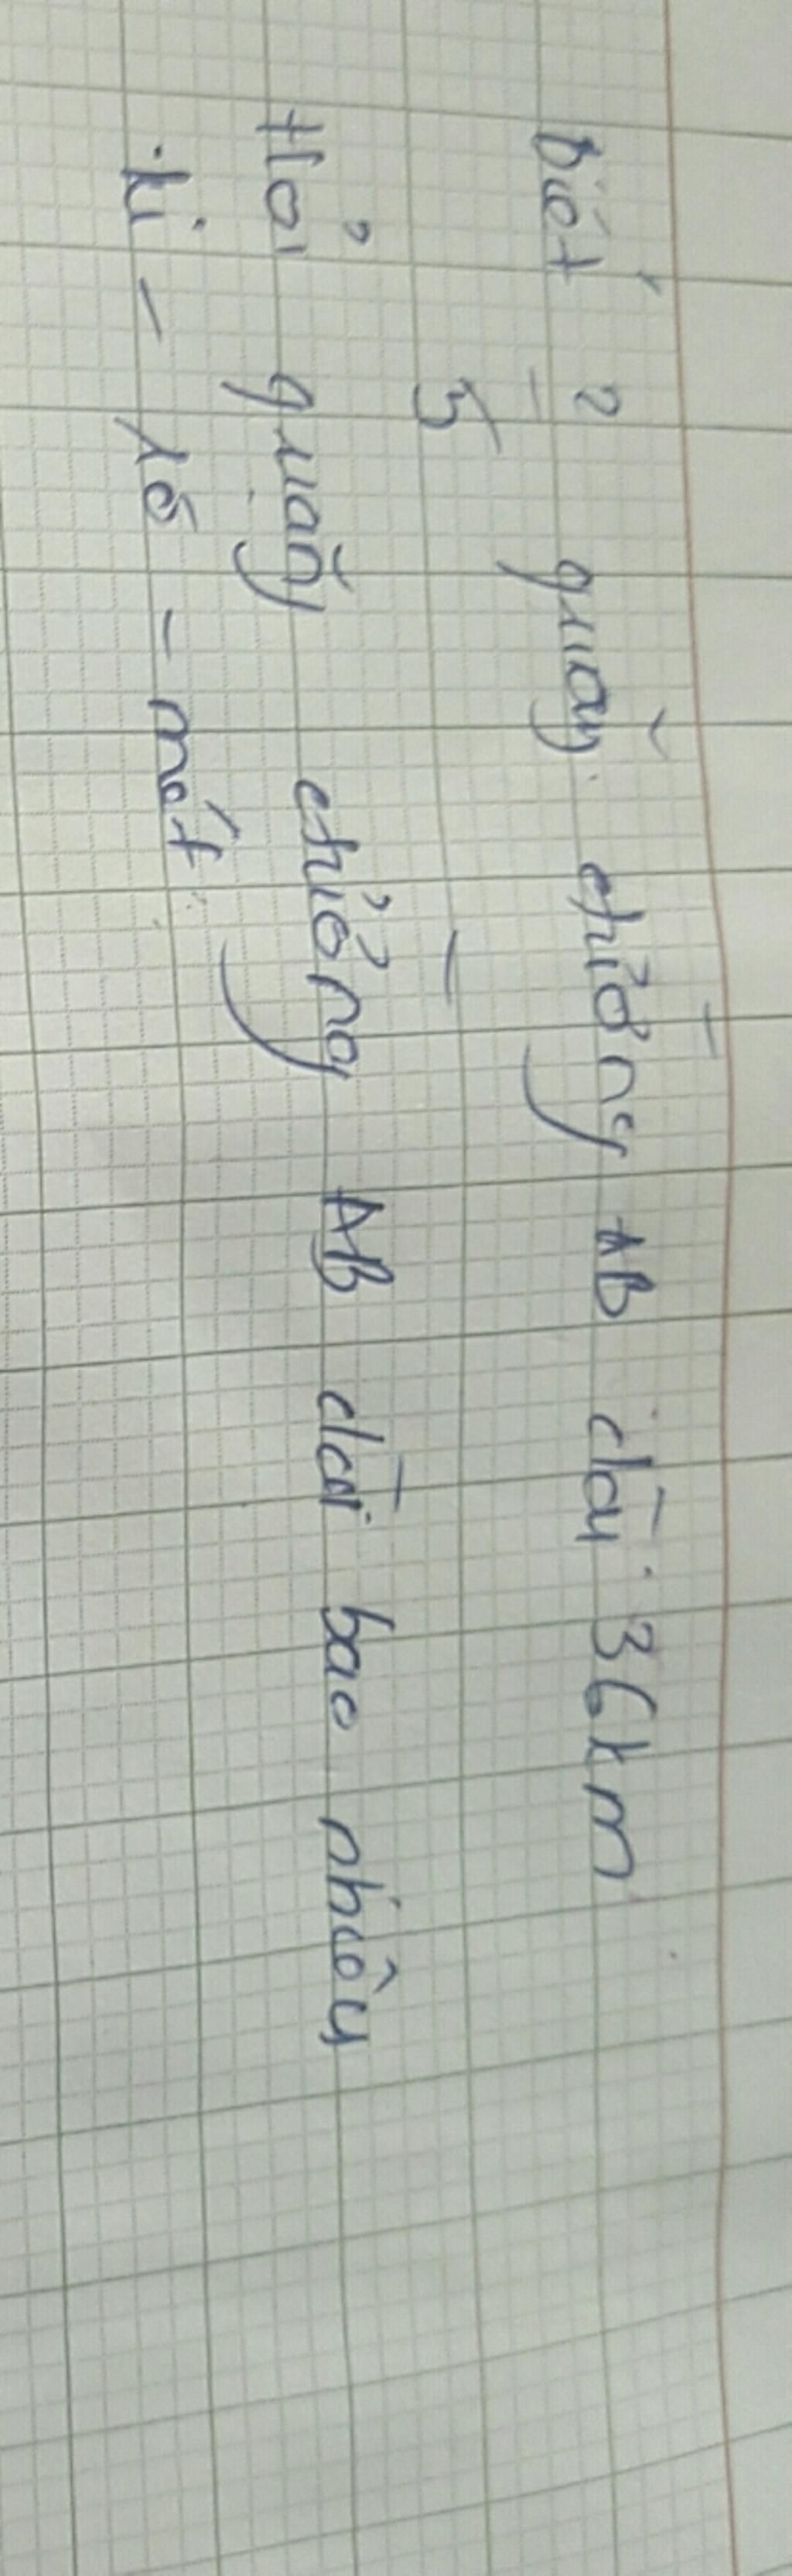 Biết 2/5 quãng đường AB dài 36km
Hỏi quãng đường AB dài bao nhiêu
ki - lô - mét